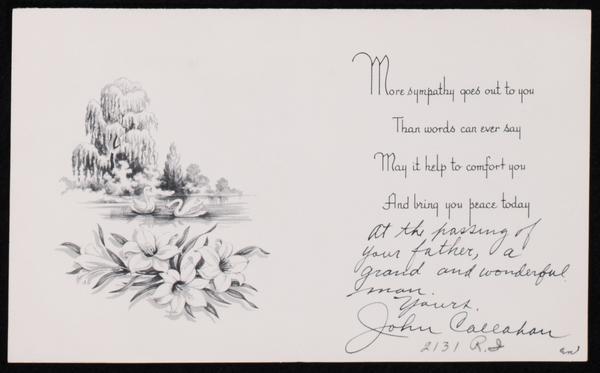 More sympathy goes out to you
Than words can ever say
May it help to comfort you
And bring you peace today
At the passing of
your father, a
grand and wonderful
man.
Yours,
John Callahan
2131 R.I